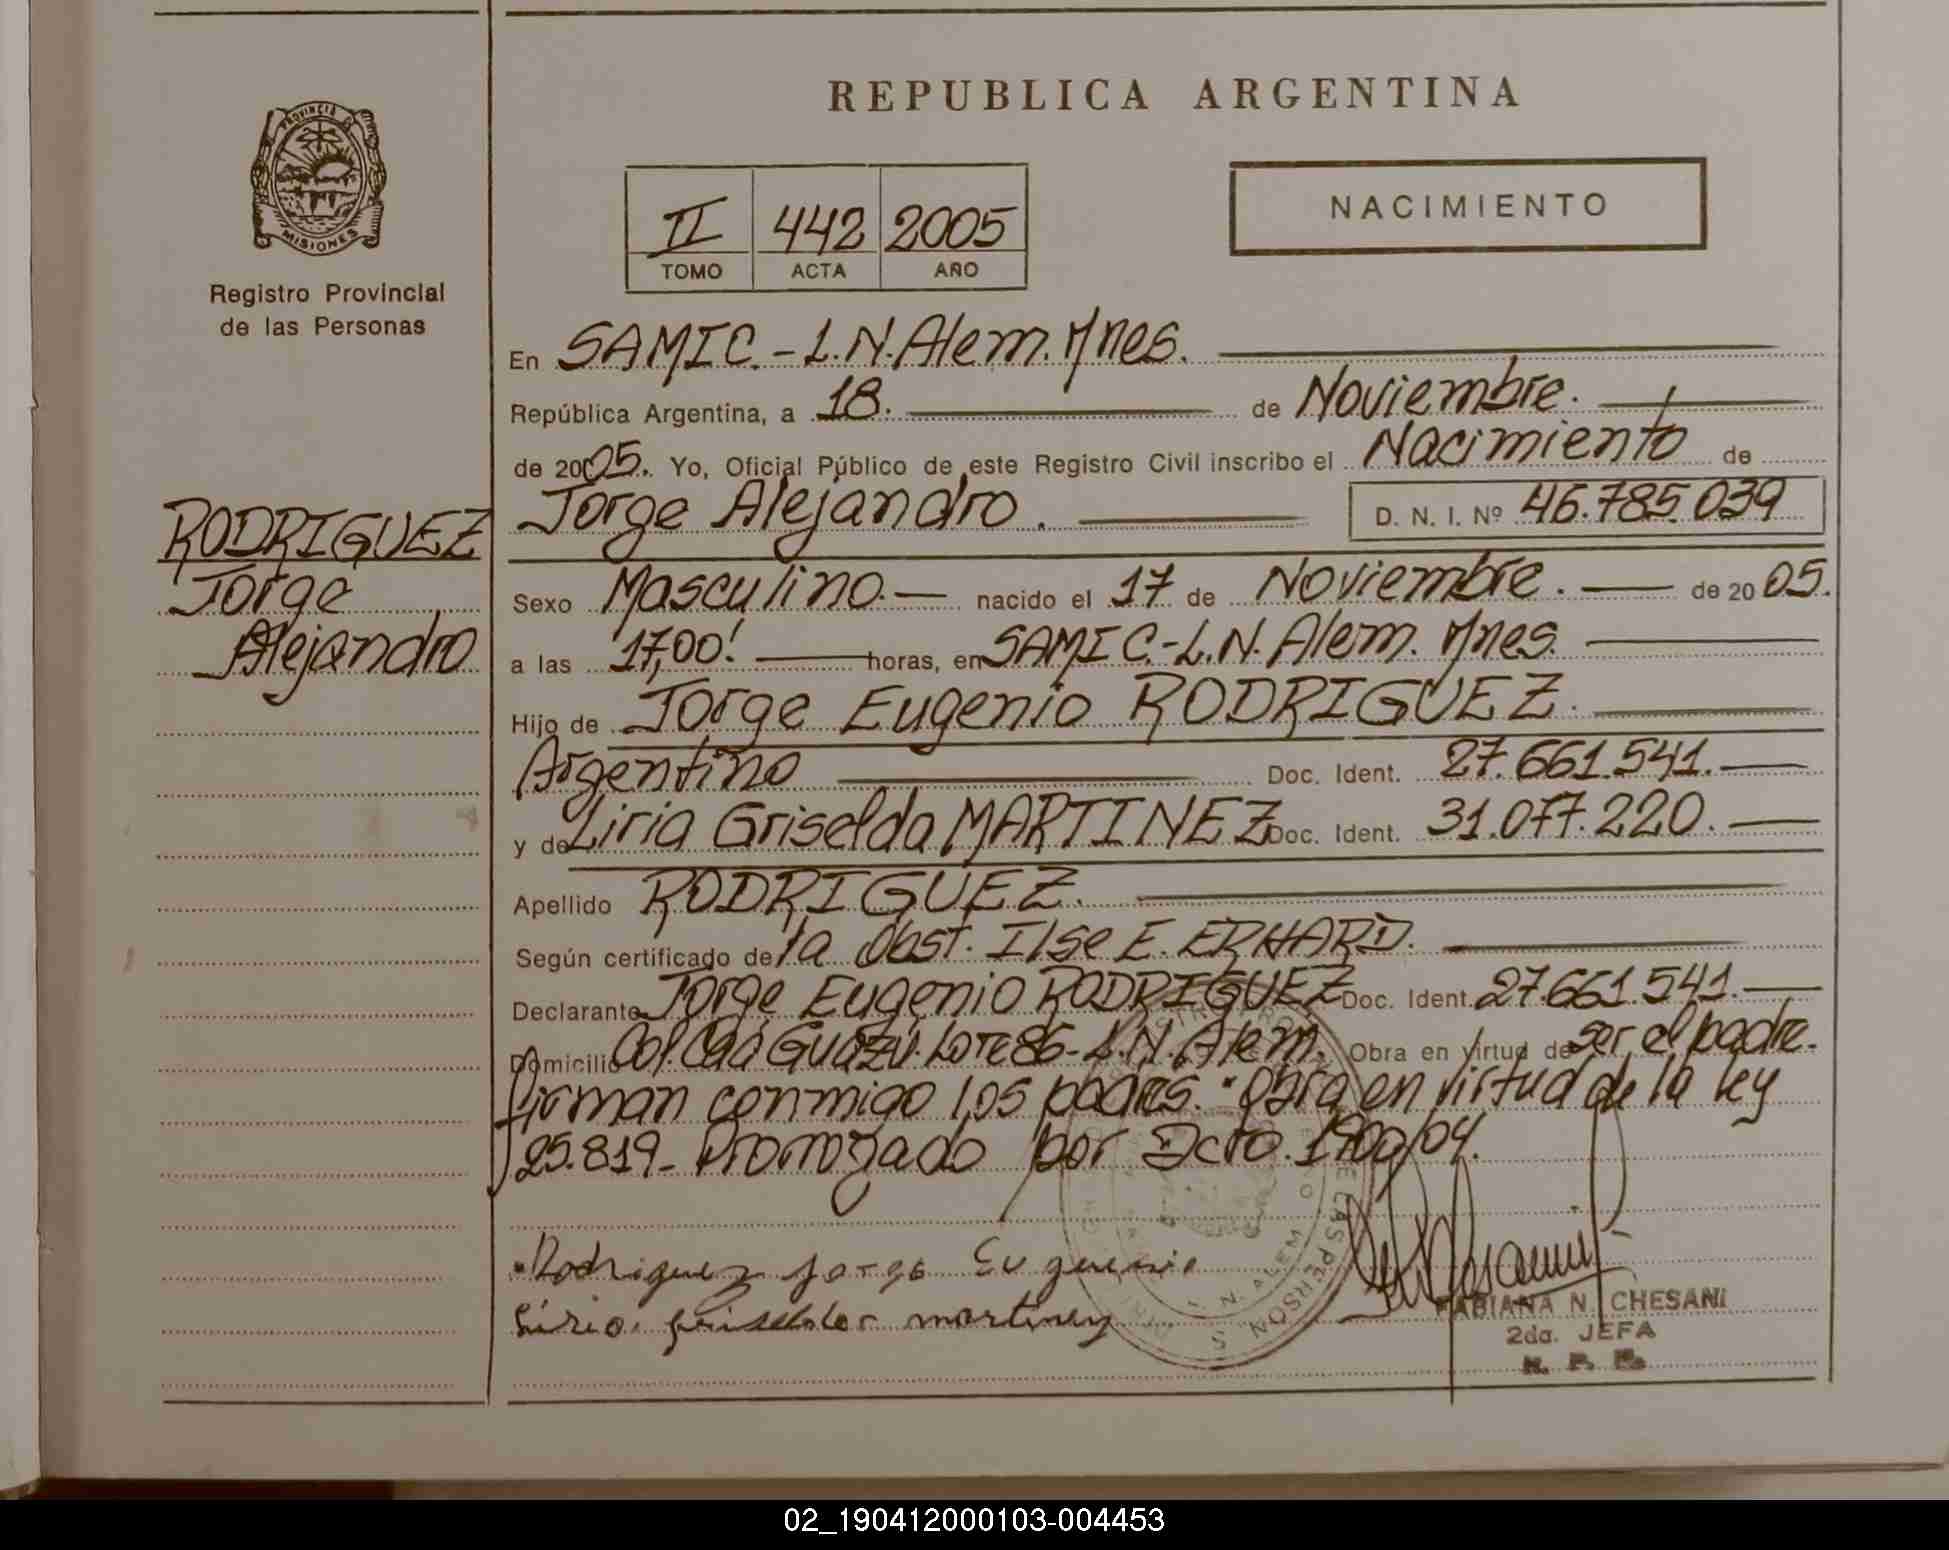 REPUBLICA ARGENTINA
PROVINCIA D
MISIONES
Registro Provincial
de las Personas
II 442 2005
TOMO ACTA AÑO
NACIMIENTO
En SAMIC.-L.N.Alem.Mnes.
República Argentina, a 18. de Noviembre.
de 2005. Yo, Oficial Público de este Registro Civil inscribo el Nacimiento de
Jorge Alejandro. D. N. I. Nº 46.785.039
RODRIGUEZ
Jorge
Alejandro
Sexo Masculino.- nacido el 17 de Noviembre. de 2005.
a las 17,00! horas, en SAMIC.-L.N.Alem. Mnes.
Hijo de Jorge Eugenio RODRIGUEZ.
Argentino Doc. Ident. 27.661.541.
y de Liria Griselda MARTINEZ Doc. Ident. 31.077.220.
Apellido RODRIGUEZ.
Según certificado de la Obst. Ilse E. ERHARD.
Declarante Jorge Eugenio RODRIGUEZ Doc. Ident. 27.661.541.
Domicilio Col. Caá Guazú. Lote 86-L.N.Alem. Obra en virtud de ser el padre.
firman conmigo los padres. "Obra en virtud de la ley
25.819- Prorrogado por Dcto. 1900/04.
Rodriguez Jorge Eugenio
Liria Griselda martinez
L. N. ALEM
DE LAS PERSONAS
FABIANA N. CHESANI
2da. JEFA
R. P. P.
02_190412000103-004453